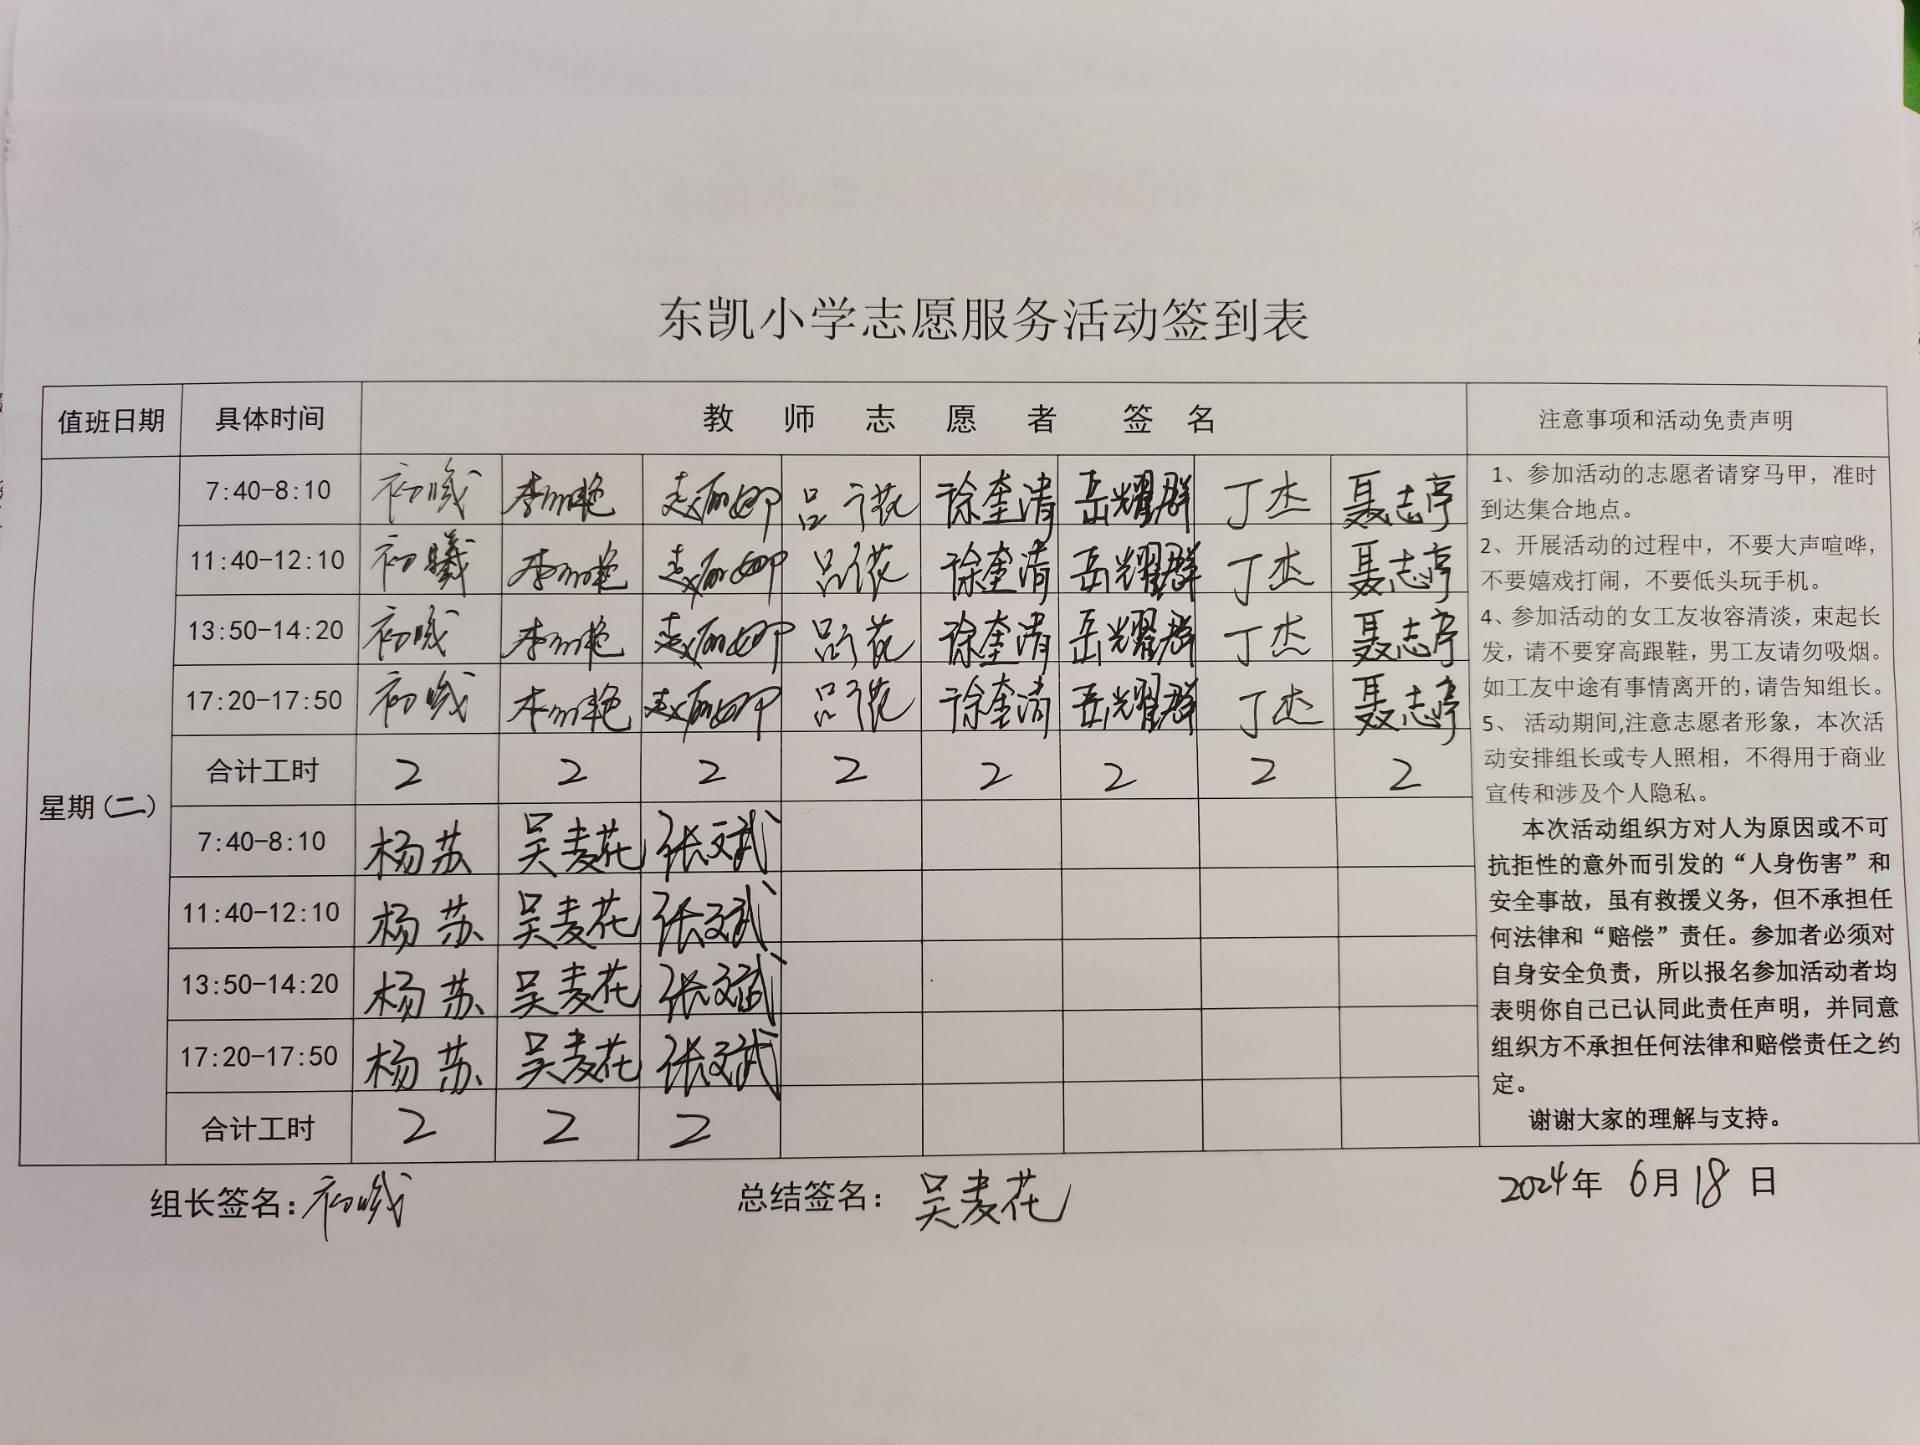 东凯小学志愿服务活动签到表
值班日期 具体时间 教师志愿者签名 注意事项和活动免责声明
星期(二)
7:40-8:10 初曦 李 艳 赵丽娜 吕 花 徐奎清 岳耀群 丁杰 聂志亭
11:40-12:10 初曦 李 艳 赵丽娜 吕 花 徐奎清 岳耀群 丁杰 聂志亭
13:50-14:20 初曦 李 艳 赵丽娜 吕 花 徐奎清 岳耀群 丁杰 聂志亭
17:20-17:50 初曦 李 艳 赵丽娜 吕 花 徐奎清 岳耀群 丁杰 聂志亭
合计工时 2 2 2 2 2 2 2 2
7:40-8:10 杨苏 吴麦花 张文斌
11:40-12:10 杨苏 吴麦花 张文斌
13:50-14:20 杨苏 吴麦花 张文斌
17:20-17:50 杨苏 吴麦花 张文斌
合计工时 2 2 2
1、参加活动的志愿者请穿马甲，准时
到达集合地点。
2、开展活动的过程中，不要大声喧哗，
不要嬉戏打闹，不要低头玩手机。
4、参加活动的女工友妆容清淡，束起长
发，请不要穿高跟鞋，男工友请勿吸烟。
如工友中途有事情离开的，请告知组长。
5、 活动期间,注意志愿者形象，本次活
动安排组长或专人照相，不得用于商业
宣传和涉及个人隐私。
本次活动组织方对人为原因或不可
抗拒性的意外而引发的“人身伤害”和
安全事故，虽有救援义务，但不承担任
何法律和“赔偿”责任。参加者必须对
自身安全负责，所以报名参加活动者均
表明你自己已认同此责任声明，并同意
组织方不承担任何法律和赔偿责任之约
定。
谢谢大家的理解与支持。
组长签名：初曦 总结签名：吴麦花 2024年 6月18日